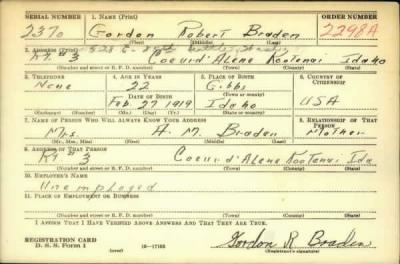 SERIAL NUMBER 1. NAME (Print) ORDER NUMBER
2370 Gordon Robert Braden 2298A
(First) (Middle) (Last)
2. ADDRESS (Print)
RT #3 Coeurd'Alene Kootenai Idaho
(Number and street or R. F. D. number) (Town) (County) (State)
3. TELEPHONE 4. AGE IN YEARS 5. PLACE OF BIRTH 6. COUNTRY OF CITIZENSHIP
None 22 Gibbs
DATE OF BIRTH (Town or county)
Feb. 27 1919 Idaho USA
(Exchange) (Number) (Mo.) (Day) (Yr.) (State or country)
7. NAME OF PERSON WHO WILL ALWAYS KNOW YOUR ADDRESS 8. RELATIONSHIP OF THAT PERSON
Mrs. A. M. Braden Mother
(Mr., Mrs., Miss) (First) (Middle) (Last)
9. ADDRESS OF THAT PERSON
RT #3 Coeurd'Alene Kootenai Ida
(Number and street or R. F. D. number) (Town) (County) (State)
10. EMPLOYER'S NAME
Unemployed
11. PLACE OF EMPLOYMENT OR BUSINESS
(Number and street or R. F. D. number) (Town) (County) (State)
I AFFIRM THAT I HAVE VERIFIED ABOVE ANSWERS AND THAT THEY ARE TRUE.
REGISTRATION CARD
D. S. S. Form 1 (over) 16-17105 Gordon R Braden
(Registrant's signature)